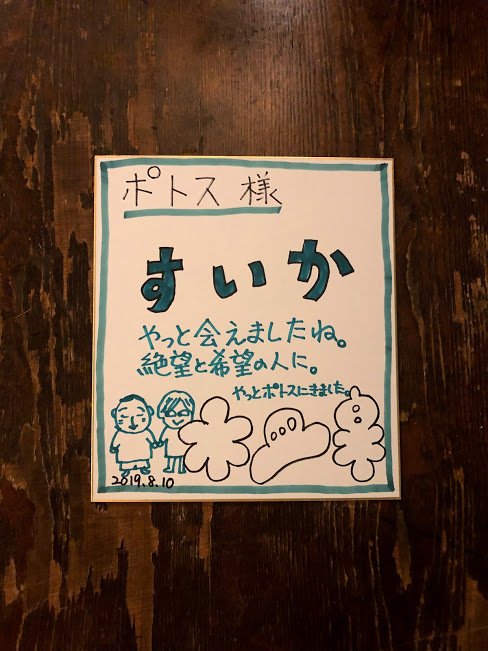 ポトス 様
すいか
やっと会えましたね。
絶望と希望の人に。
やっとポトスにきました。
2019.8.10